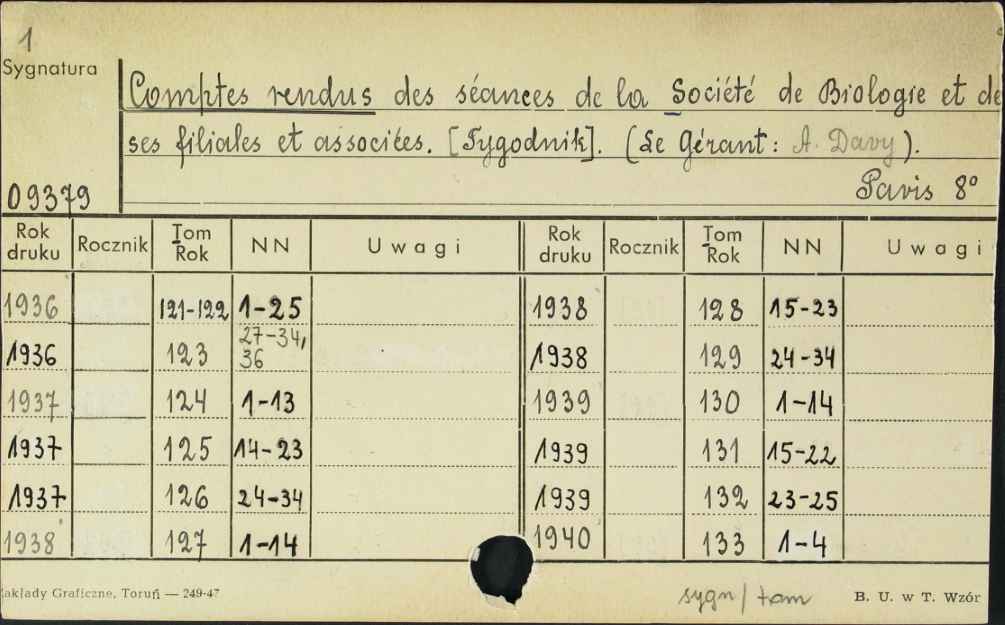 1
Sygnatura
Comptes rendus des séances de la Société de Biologie et de
ses filiales et associées. [Tygodnik]. (Le Gérant: A. Davy).
09379
Paris 8°
Rok druku Rocznik Tom Rok NN Uwagi Rok druku Rocznik Tom Rok NN Uwagi
1936 121-122 1-25 1938 128 15-23
1936 123 27-34, 36 1938 129 24-34
1937 124 1-13 1939 130 1-14
1937 125 14-23 1939 131 15-22
1937 126 24-34 1939 132 23-25
1938 127 1-14 1940 133 1-4
akłady Graficzne, Toruń — 249-47
sygn/tom
B. U. w T. Wzór